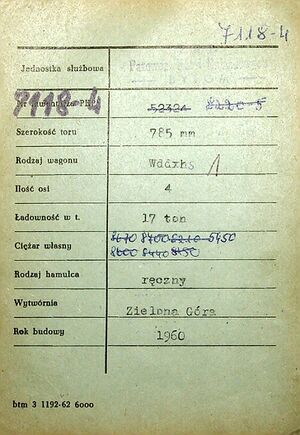 7118-4
Jednostka służbowa
Nr inwentarza PKP 52324 8220-5
7118-4
Szerokość toru 785 mm
Rodzaj wagonu Wddxhs 1
Ilość osi 4
Ładowność w t. 17 ton
Ciężar własny 8170 8700 8210 5450
8600 8440 8150
Rodzaj hamulca ręczny
Wytwórnia Zielona Góra
Rok budowy 1960
btm 3 1192-62 6000